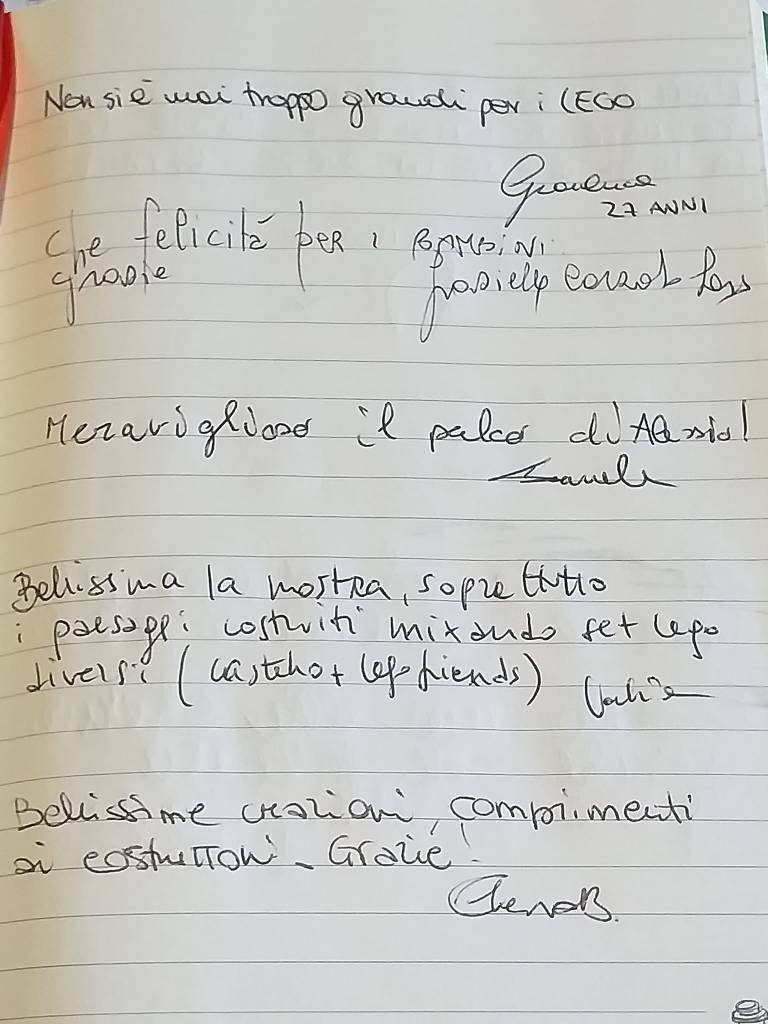 Non si è mai troppo grandi per i LEGO
Gianluca
27 ANNI
Che felicità PER i BAMBiNi
grazie
Meraviglioso il palco di Alessio!
Bellissima la mostra, soprattutto
i paesaggi costruiti mixando set lego
diversi (castello + lego friends)
Bellissime creazioni, complimenti
ai costruttori - Grazie!
Elena B.